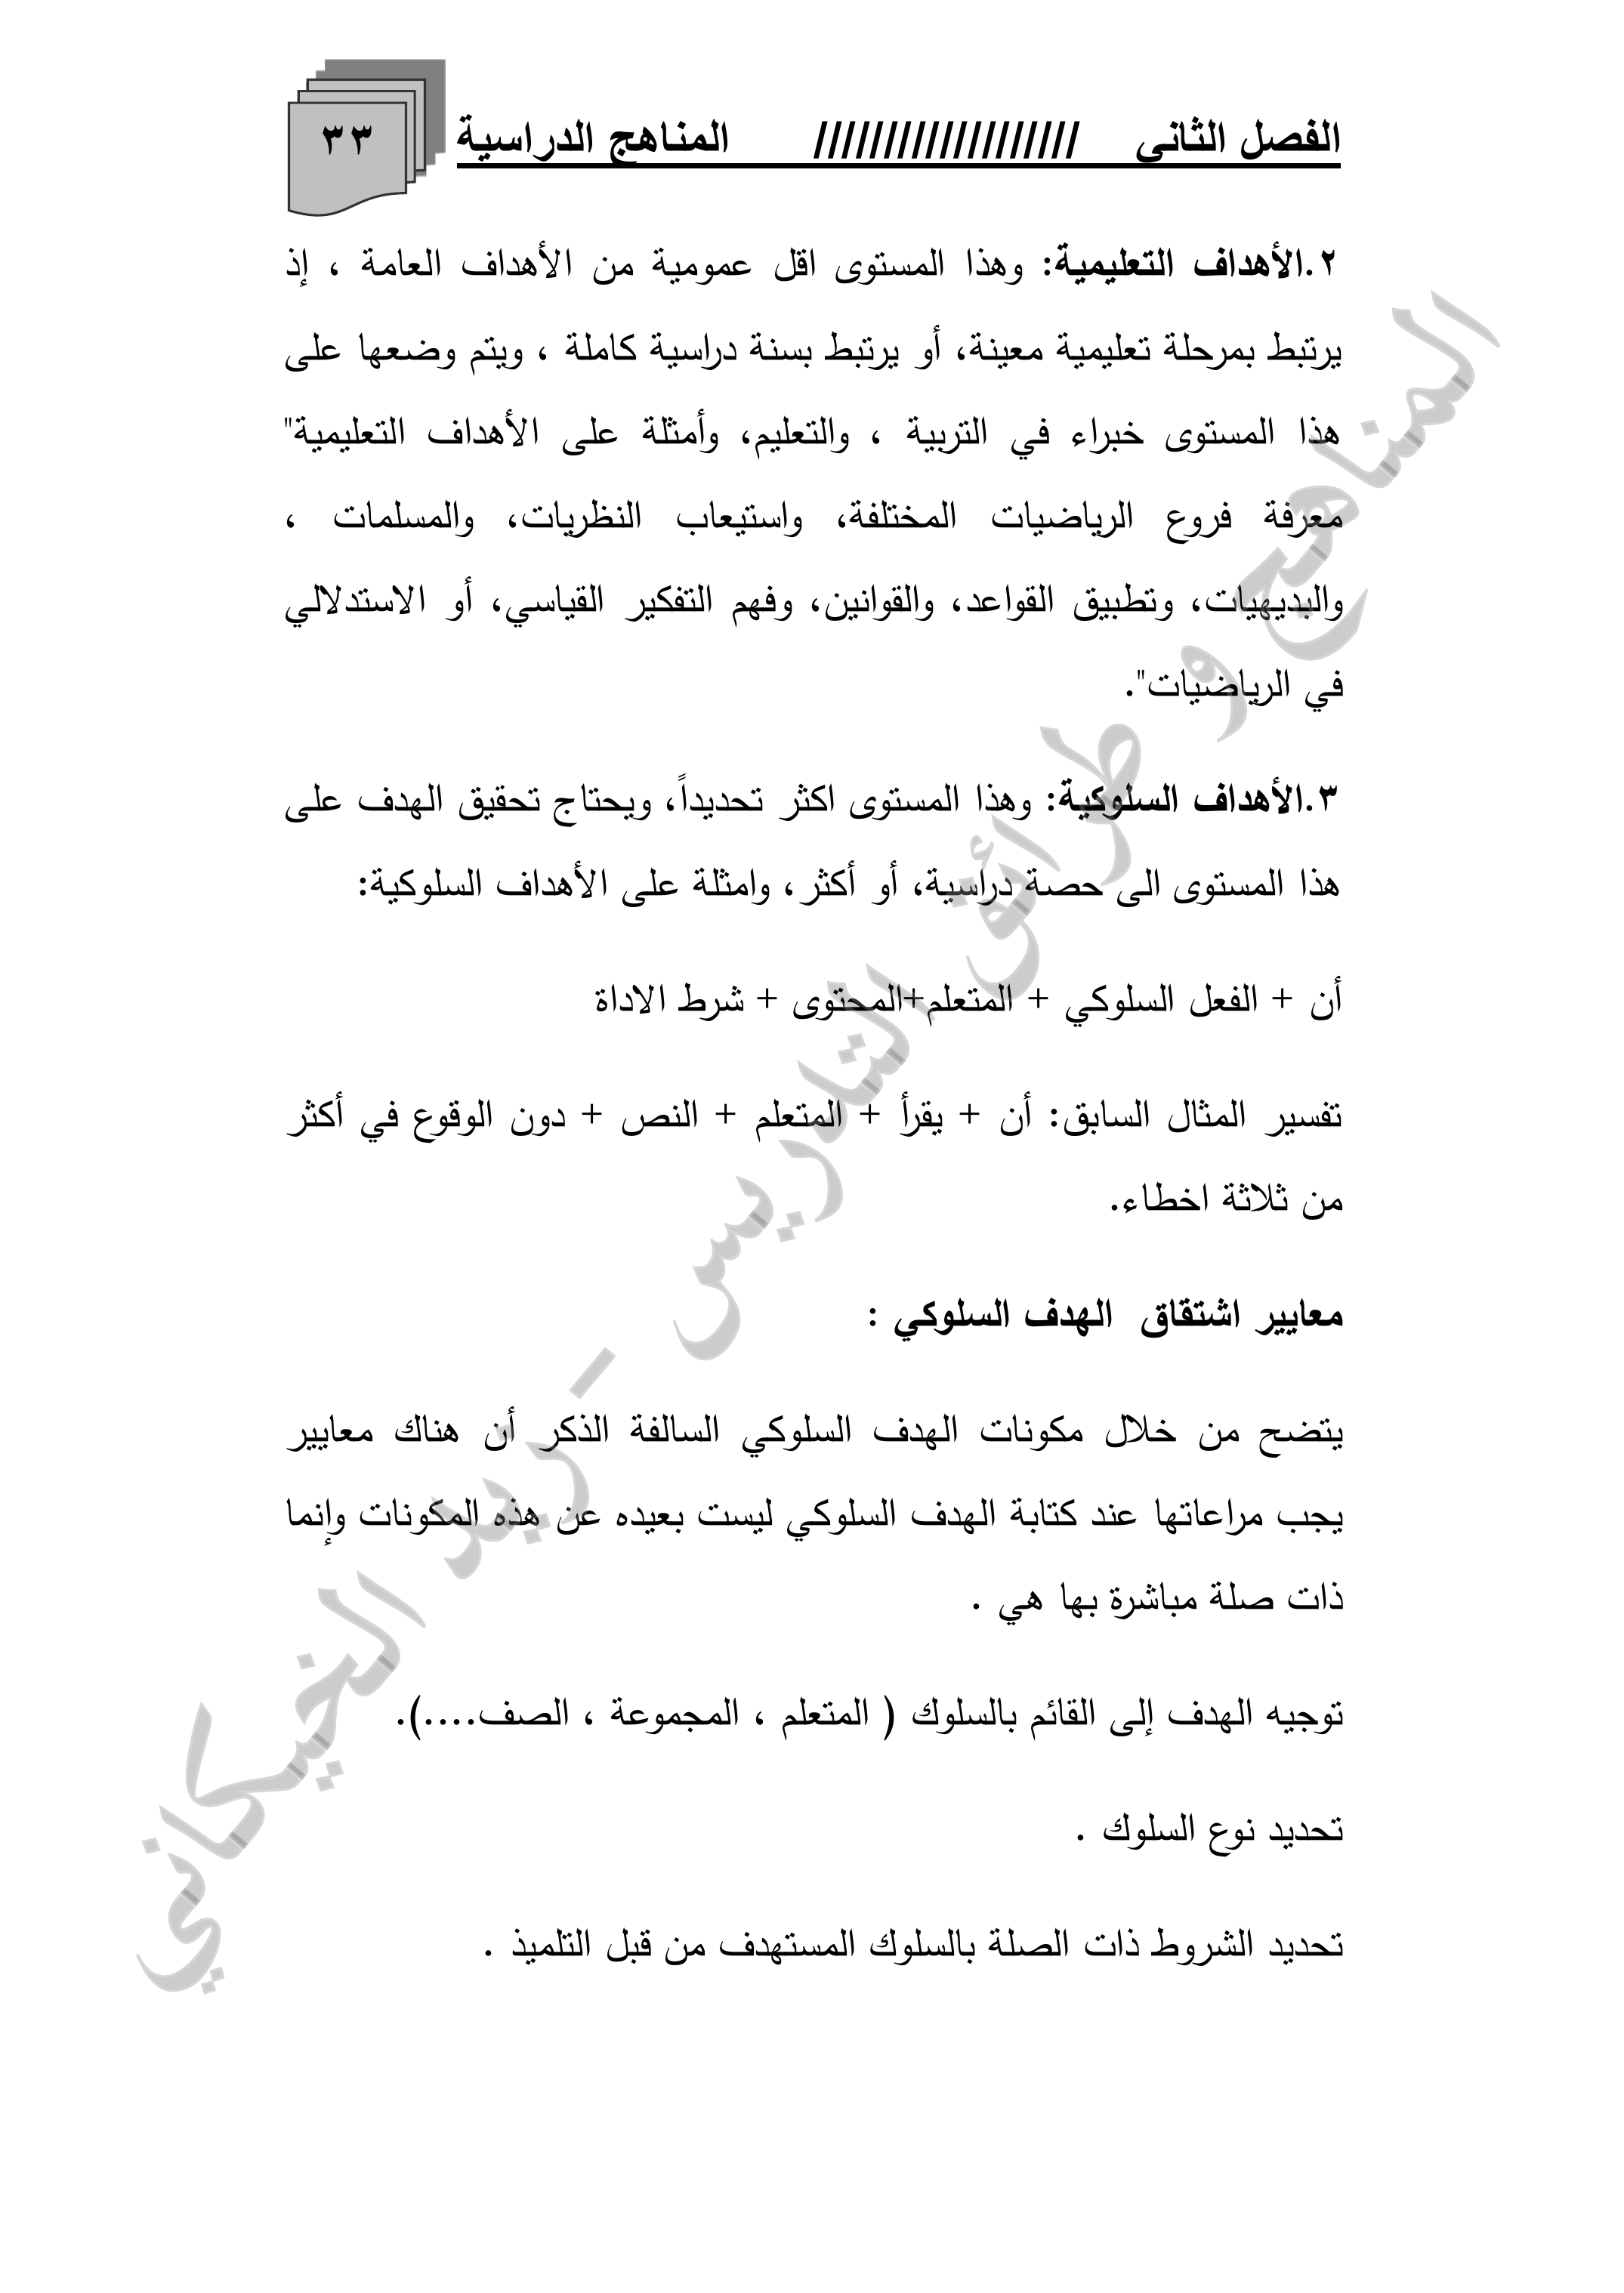 الفصل الثاني /////////////////// المناهج الدراسية ٣٣
٢.الأهداف التعليمية: وهذا المستوى اقل عمومية من الأهداف العامة ، إذ
يرتبط بمرحلة تعليمية معينة، أو يرتبط بسنة دراسية كاملة ، ويتم وضعها على
هذا المستوى خبراء في التربية ، والتعليم، وأمثلة على الأهداف التعليمية"
معرفة فروع الرياضيات المختلفة، واستيعاب النظريات، والمسلمات ،
والبديهيات، وتطبيق القواعد، والقوانين، وفهم التفكير القياسي، أو الاستدلالي
في الرياضيات".
٣.الأهداف السلوكية: وهذا المستوى اكثر تحديداً، ويحتاج تحقيق الهدف على
هذا المستوى الى حصة دراسية، أو أكثر، وامثلة على الأهداف السلوكية:
أن + الفعل السلوكي + المتعلم+المحتوى + شرط الاداة
تفسير المثال السابق: أن + يقرأ + المتعلم + النص + دون الوقوع في أكثر
من ثلاثة اخطاء.
معايير اشتقاق الهدف السلوكي :
يتضح من خلال مكونات الهدف السلوكي السالفة الذكر أن هناك معايير
يجب مراعاتها عند كتابة الهدف السلوكي ليست بعيده عن هذه المكونات وإنما
ذات صلة مباشرة بها هي .
توجيه الهدف إلى القائم بالسلوك ( المتعلم ، المجموعة ، الصف....).
تحديد نوع السلوك .
تحديد الشروط ذات الصلة بالسلوك المستهدف من قبل التلميذ .
المناهج و طرائق التدريس - ريد الخيكاني